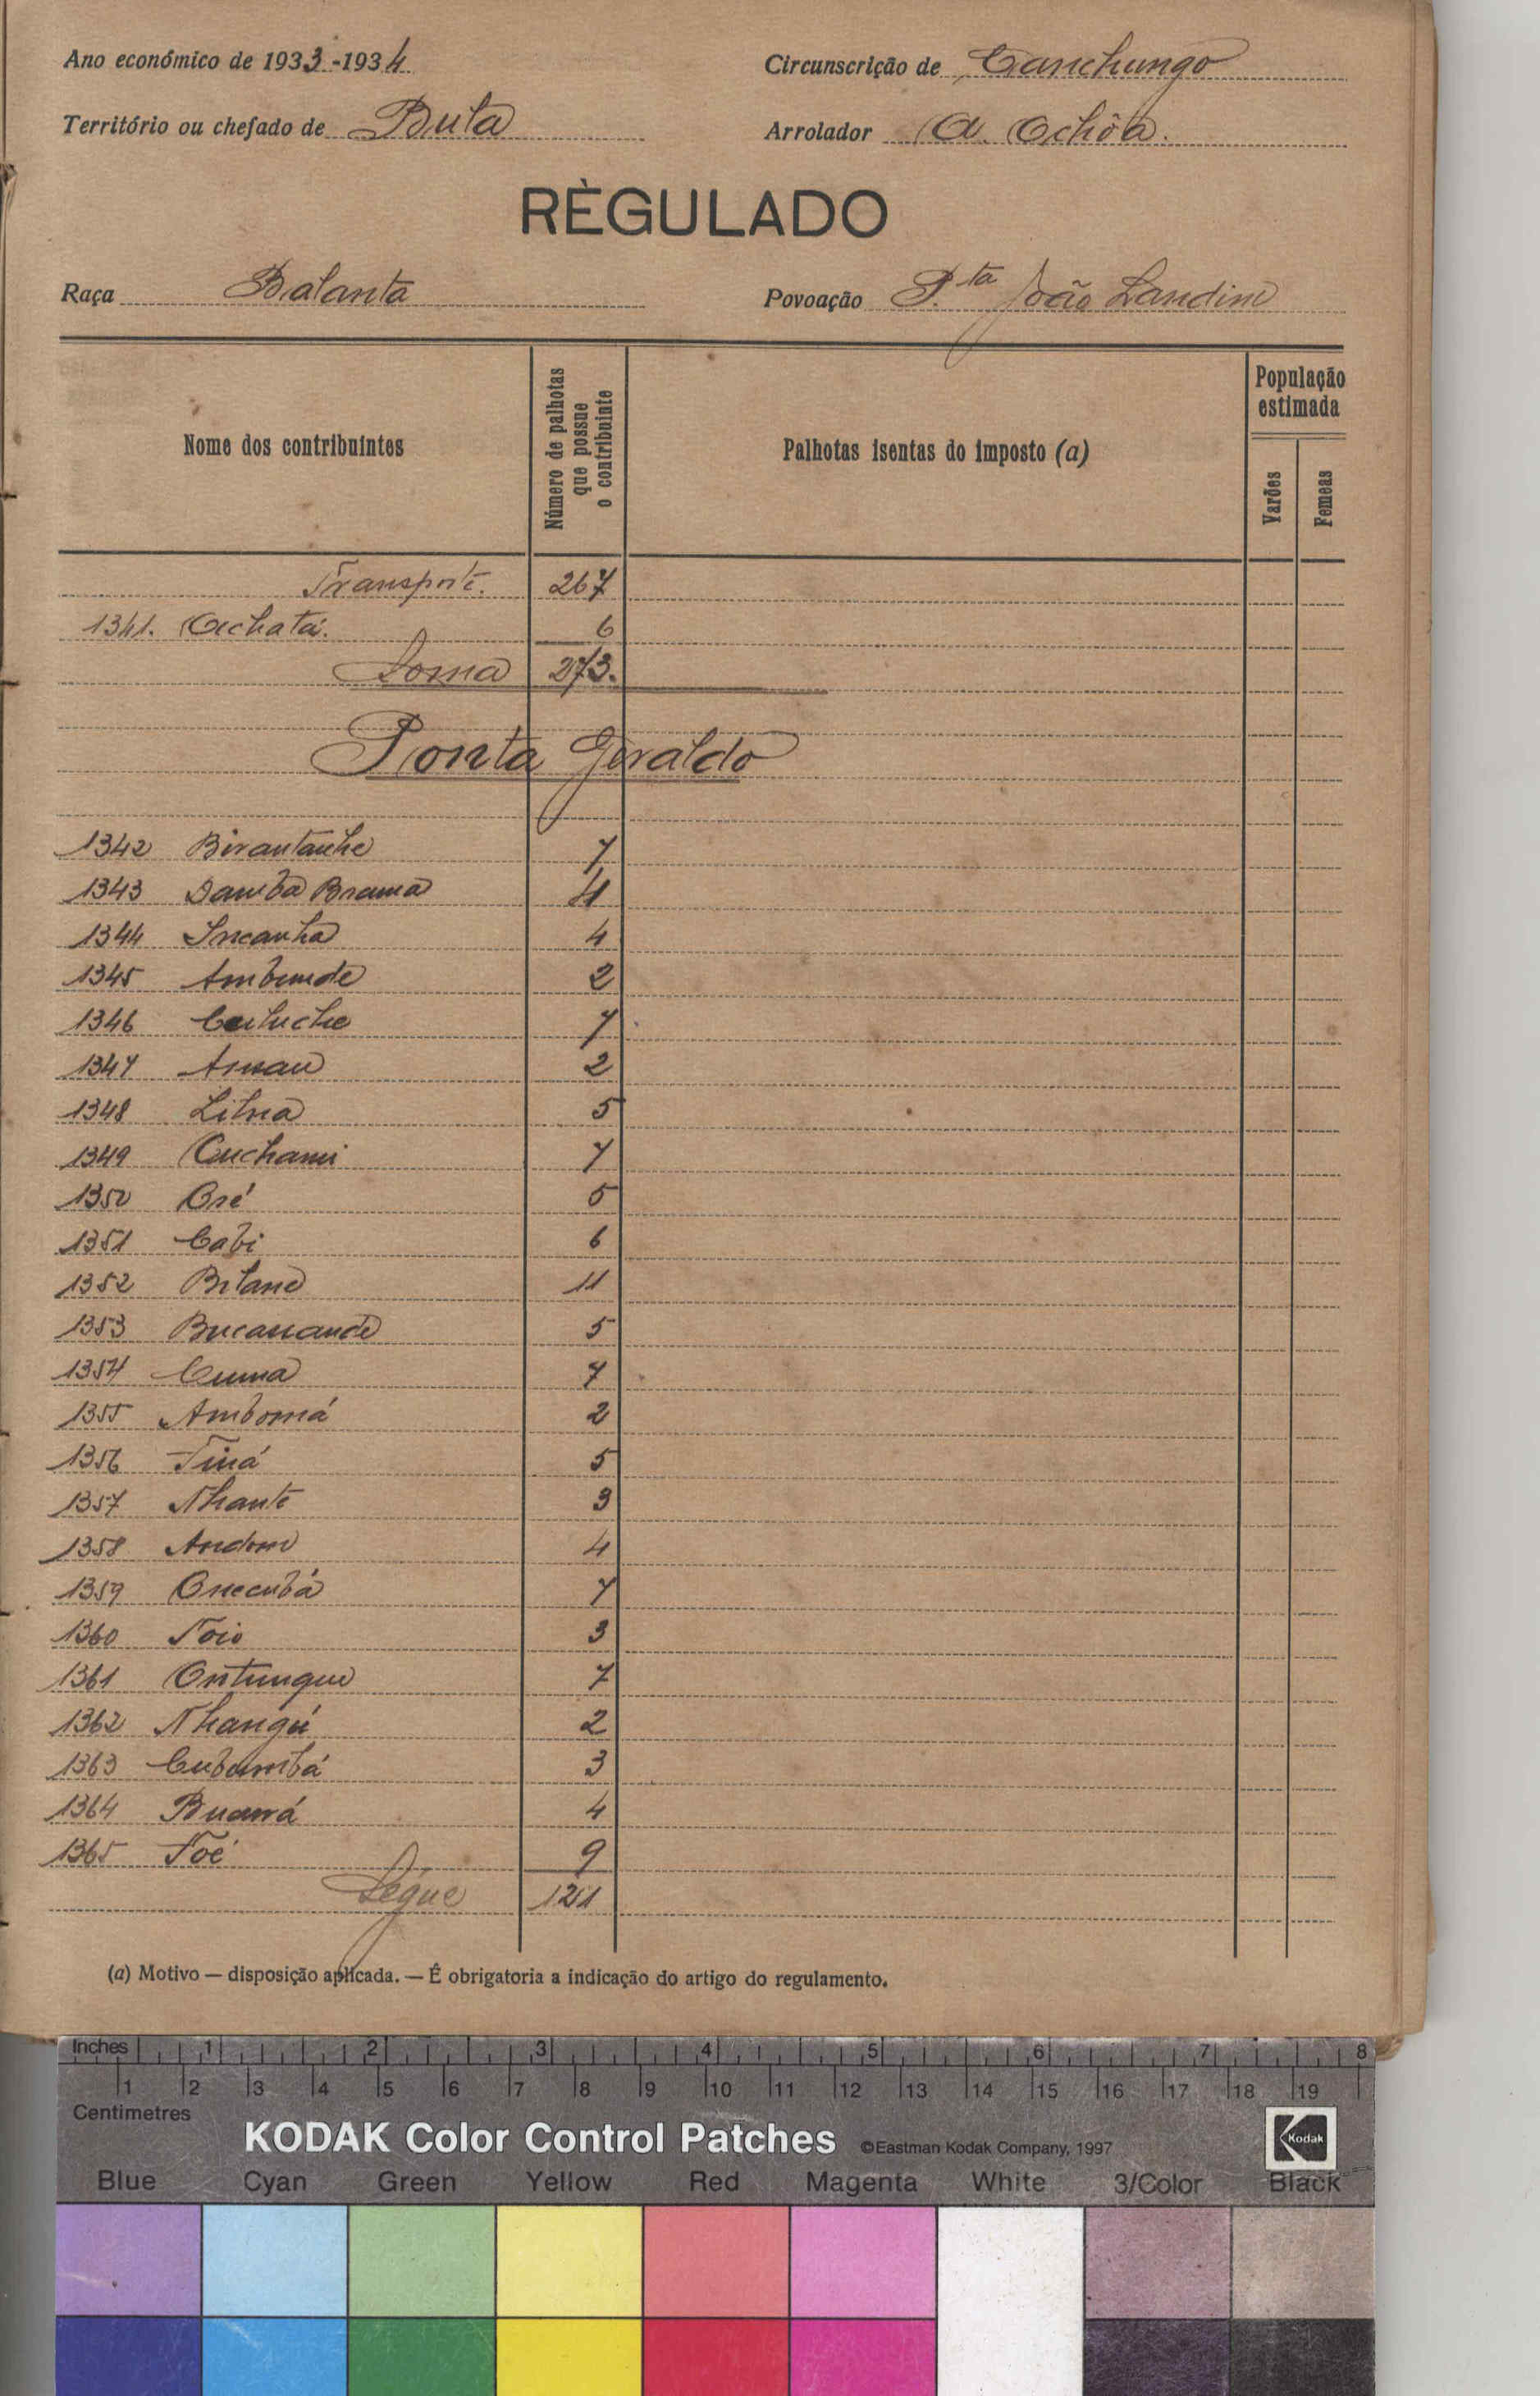 Ano económico de 1933-1934
Circunscrição de Canchungo
Território ou chefado de Bula
Arrolador A. Ochôa.
RÈGULADO
Raça Balanta
Povoação P.ta João Landim
Nome dos contribuintes
Número de palhotas que possue o contribuinte
Palhotas isentas do imposto (a)
População estimada
Varões
Femeas
Transporte. 267
1341. Ochatá. 6
Soma 273.
Ponta Geraldo
1342 Birantanhe 7
1343 Samba Brama 4
1344 Incanha 4
1345 Ambunde 2
1346 7
1347 2
1348 5
1349 Cuchami 7
1350 Oré 5
1351 Cabi 6
1352 Bilane 11
1353 5
1354 Cuma 7
1355 Ambomá 2
1356 Tiná 5
1357 Nhante 3
1358 Andom 4
1359 Onecubá 7
1360 Toio 3
1361 Ontungue 7
1362 Nhangú 2
1363 Cubambá 3
1364 4
1365 Toé 9
Ségue 121
(a) Motivo — disposição aplicada. — É obrigatoria a indicação do artigo do regulamento.
Inches 1 2 3 4 5 6 7 8
1 2 3 4 5 6 7 8 9 10 11 12 13 14 15 16 17 18 19
Centimetres
KODAK Color Control Patches ©Eastman Kodak Company, 1997 Kodak
Blue Cyan Green Yellow Red Magenta White 3/Color Black